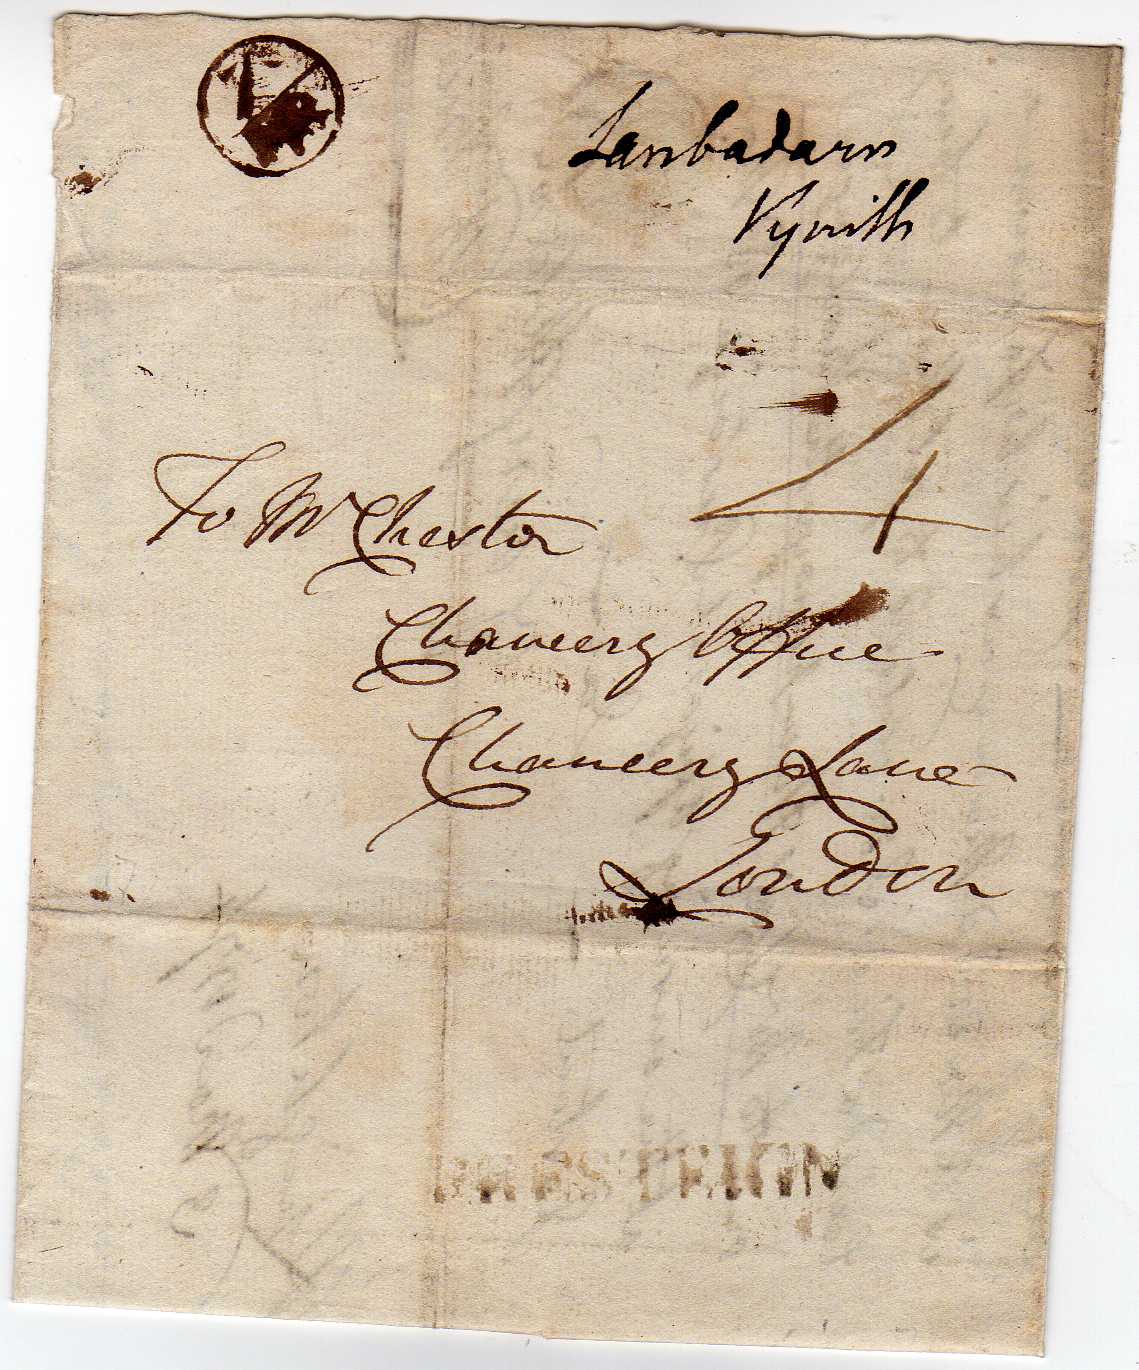 Lanbadarn
Vynith
4
To Mr Chester
Chancery Office
Chancery Lane
London
PRESTEIGN